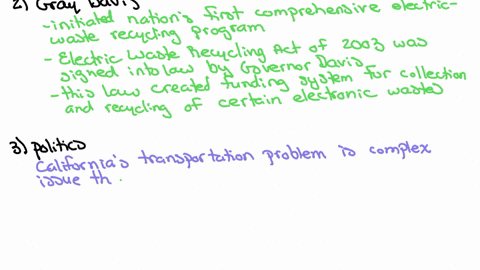 2) Gray Davis
-initiated nation's first comprehensive electric-
waste recycling program
- Electric Waste Recycling Act of 2003 was
signed into law by Governor Davis
-this law created funding system for collection
and recycling of certain electronic wastes
3) politics
California's transportation problem is complex
issue th